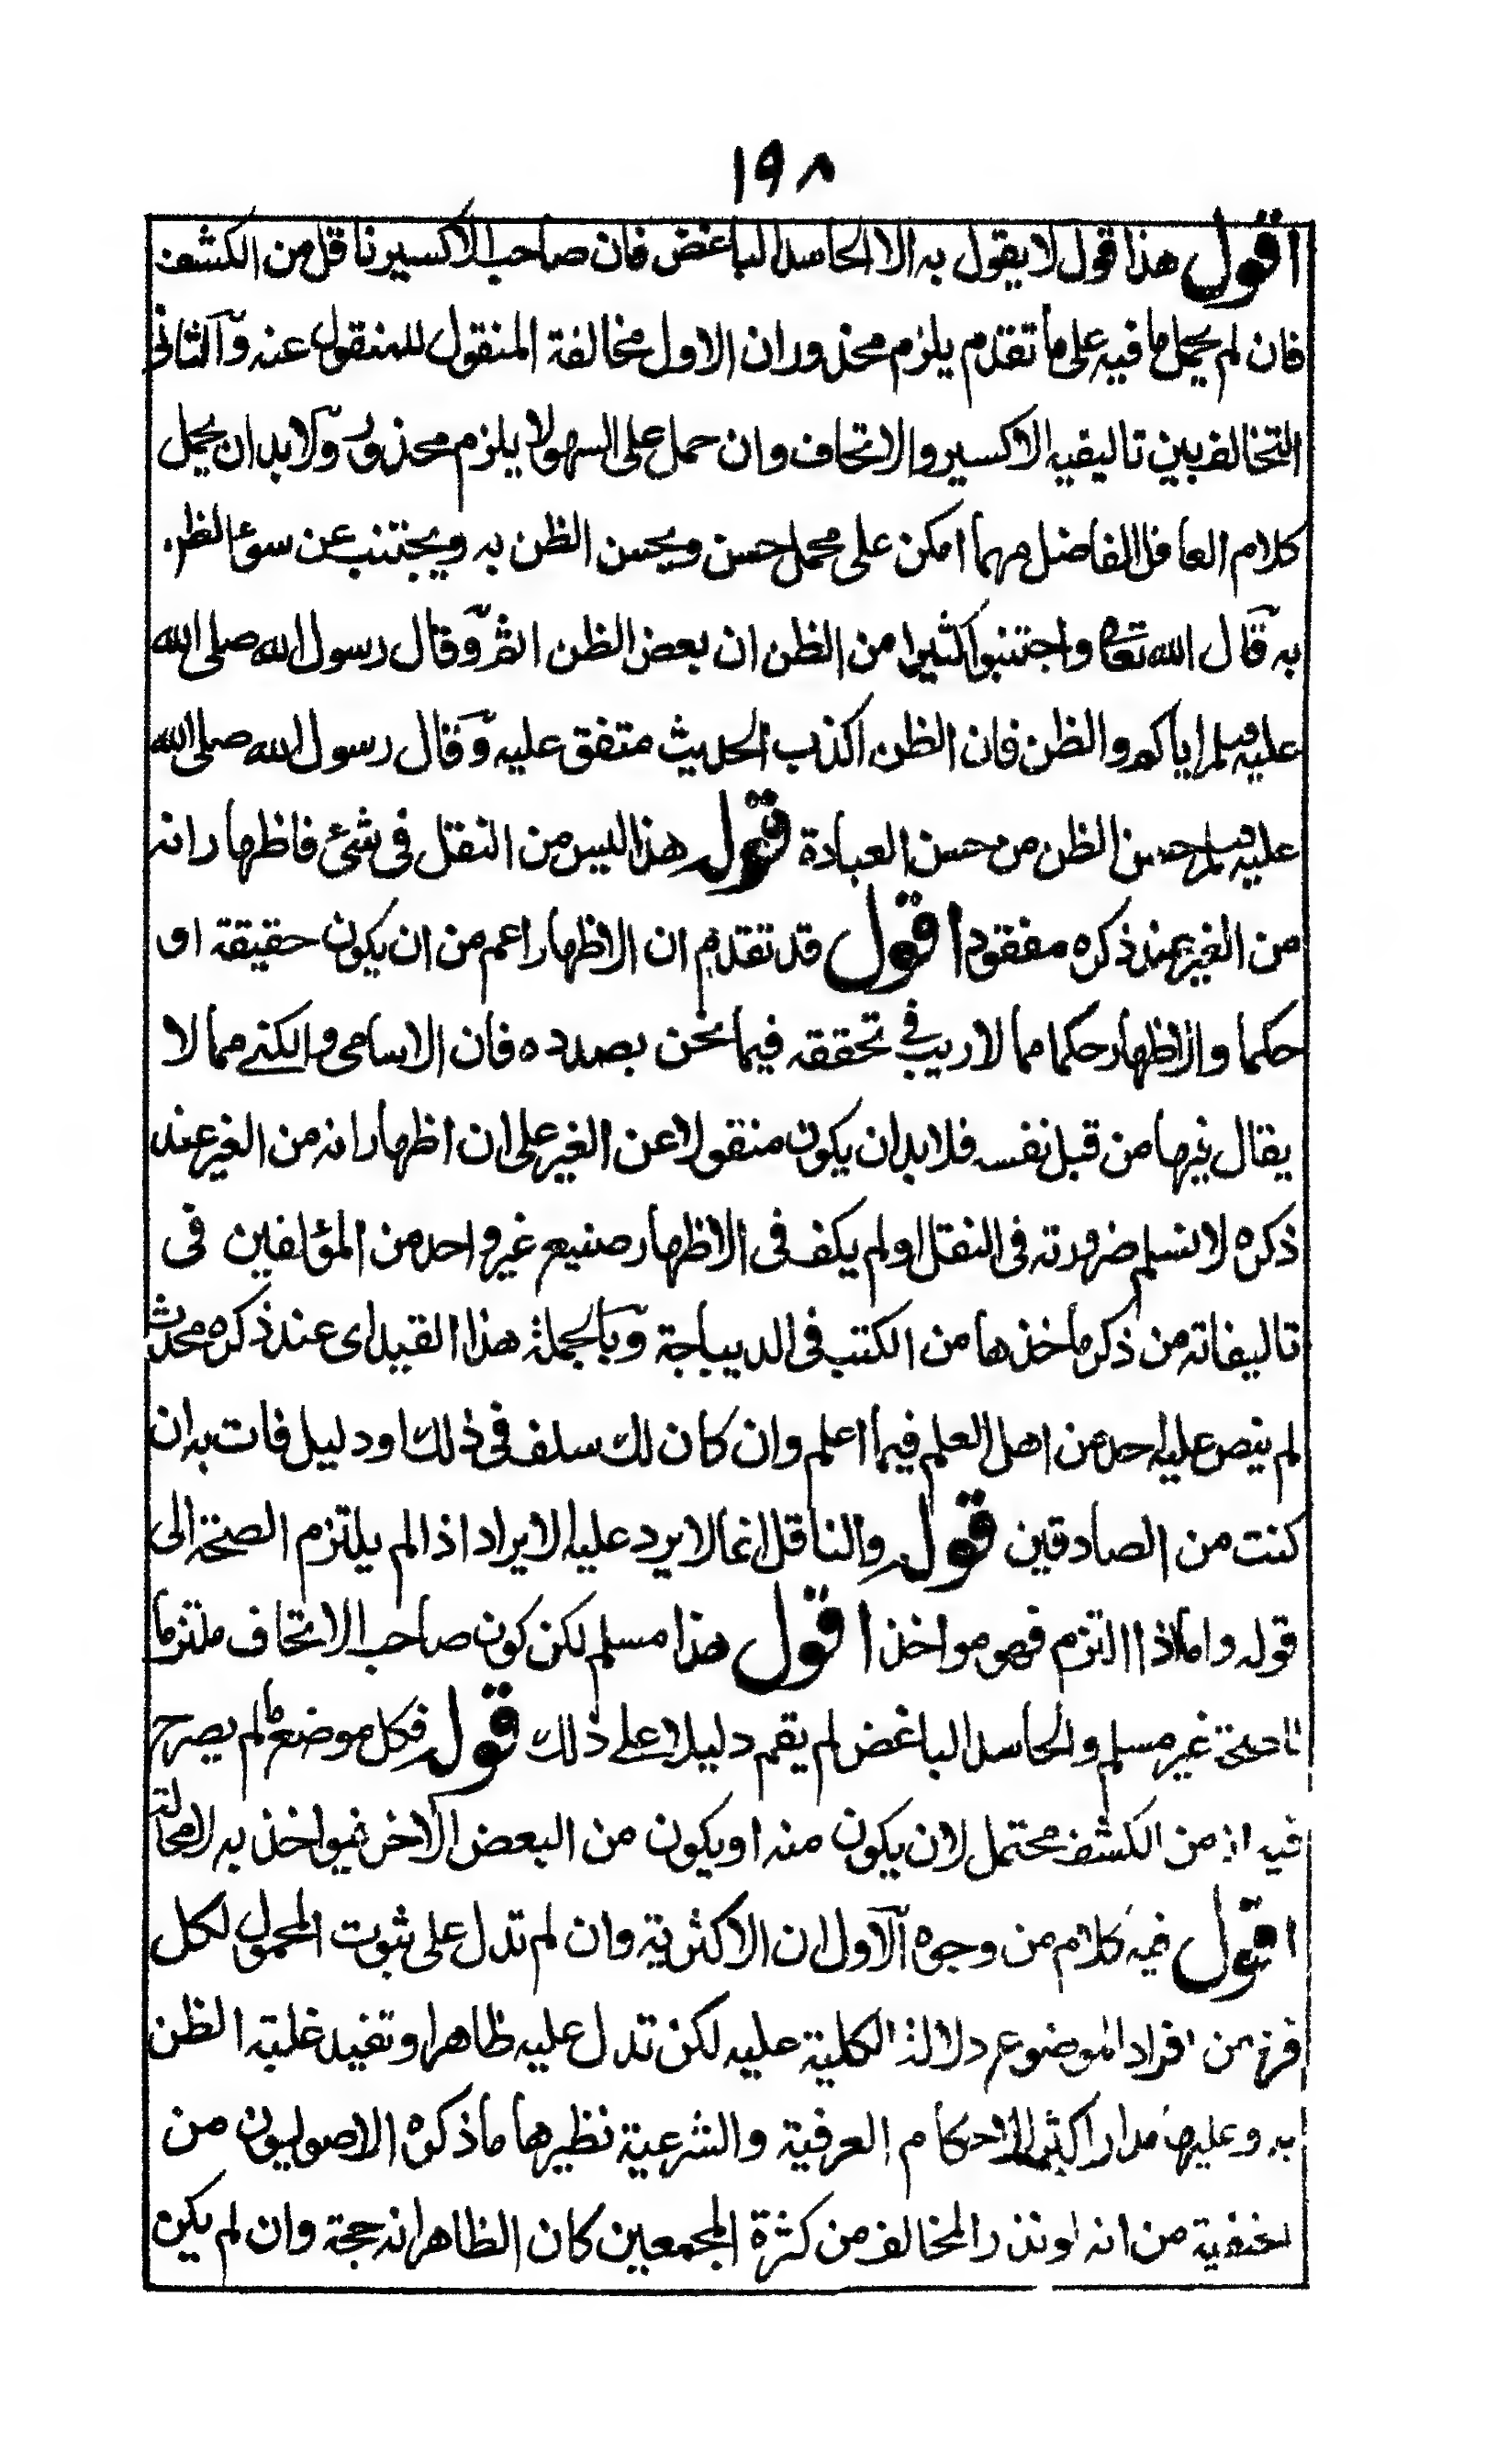 ١٩٨
اقول هذا قول لا يقول به الا الحاسد الباغض فان صاحب الاكسير ناقل من الكشف
فان لم يحمل ما فيه على ما تقدم يلزم محذوران الاول مخالفة المنقول للمنقول عنه والثانى
التخالف بين تاليفيه الاكسير والاتحاف وان حمل على السهو لا يلزم محذور ولا بد ان يحمل
كلام العاقل الفاضل مهما امكن على محمل حسن ويحسن الظن به ويجتنب عن سوء الظن
به قال الله تعالى واجتنبوا كثيرا من الظن ان بعض الظن اثم وقال رسول الله صلى الله
عليه وسلم اياكم والظن فان الظن اكذب الحديث متفق عليه وقال رسول الله صلى الله
عليه وسلم حسن الظن من حسن العبادة قوله هذا ليس من النقل فى شئ فاظهار انه
من الغير عند ذكره مفقود اقول قد تقدم ان الاظهار اعم من ان يكون حقيقة او
حكما والاظهار حكما مما لا ريب فى تحققه فيما نحن بصدده فان الاسامى والكنى مما لا
يقال فيها من قبل نفسه فلا بد ان يكون منقولا عن الغير على ان اظهار انه من الغير عند
ذكره لا نسلم ضرورته فى النقل او لم يكف فى الاظهار صنيع غير واحد من المؤلفين فى
تاليفاته من ذكر ماخذها من الكتب فى الديباجة وبالجملة هذا القيد اى عند ذكره محدث
لم ينص عليه احد من اهل العلم فيما اعلم وان كان لك سلف فى ذلك او دليل فات به ان
كنت من الصادقين قوله والناقل انما لا يرد عليه الايراد اذا لم يلتزم الصحة الى
قوله واما اذا التزم فهو مواخذ اقول هذا مسلم لكن كون صاحب الاتحاف ملتزما
للصحة غير مسلم والحاسد الباغض لم يقم دليلا على ذلك قوله فكل موضع لم يصرح
فيه انه من الكشف محتمل لان يكون منه او يكون من البعض الآخر فيواخذ به لا محالة
اقول فيه كلام من وجوه الاول ان الاكثرية وان لم تدل على ثبوت المحمول لكل
فرد من افراد الموضوع دلالة الكلية عليه لكن تدل عليه ظاهرا وتفيد غلبة الظن
به وعليها مدار اكثر الاحكام العرفية والشرعية نظيرها ما ذكره الاصوليون من
الحنفية من انه لو نذر المخالف من كثرة المجمعين كان الظاهر انه حجة وان لم يكن